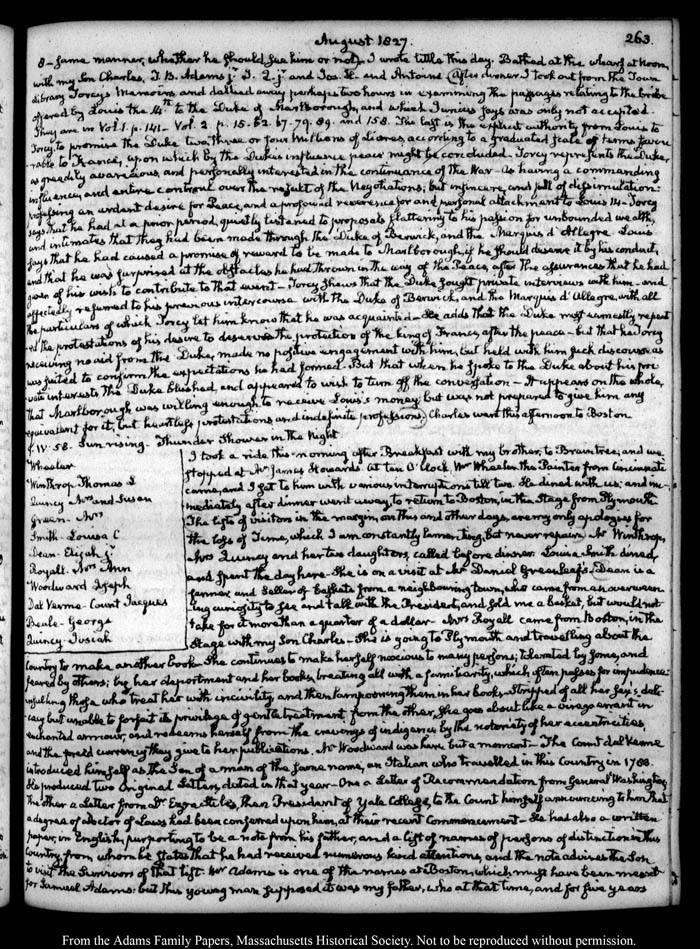 August 1827.
263.
8- same manner, whether he should see him or not. I wrote little this day. Bathed at the wharf at Noon,
with my Son Charles, T. B. Adams jr. J. Q. jr and Jos. H. and Antoine. After dinner I took out from the Town
Library Torcy's Memoirs and dallied away perhaps two hours in examining the passages relating to the bribe
offered by Louis the 14th to the Duke of Marlborough, and which Junius says was only not accepted.
They are in Vol. 1. p. 141- Vol. 2. p. 15-62. 67-79. 89. and 158. The last is the explicit authority from Louis to
Torcy, to promise the Duke two three or four Millions of Livres, according to a graduated scale of terms favou-
rable to France, upon which by the Dukes influence peace might be concluded. Torcy represents the Duke,
as greedily avaricious and personally interested in the continuance of the War- as having a commanding
influence, and entire controul over the result of the Negotiations; but insincere, and full of dissimulation:
professing an ardent desire for Peace, and a profound reverence for and personal attachment to Louis 14- Torcy
says that he had at a prior period, quietly listened to proposals flattering to his passion for unbounded wealth,
and intimates that they had been made through the Duke of Berwick, and the Marquis d'Allegre. Louis
says that he had caused a promise of reward to be made to Marlborough, if he should deserve it by his conduct,
and that he was surprized at the obstacles he had thrown in the way of the Peace, after the assurances that he had
given of his wish to contribute to that event- Torcy shews that the Duke sought private interviews with him- and
affectedly referred to his previous intercourse with the Duke of Berwick, and the Marquis d'Allegre, with all
the particulars of which Torcy let him know that he was acquainted- He adds that the Duke most earnestly repeat
ed the protestations of his desire to deserve the protection of the king of France, after the peace- but that he Torcy
receiving no aid from the Duke, made no positive engagement with him, but held with him such discourse as
was suited to confirm the expectations he had formed. But that when he spoke to the Duke about his pri
vate interests the Duke blushed, and appeared to wish to turn off the conversation- It appears on the whole,
that Marlborough was willing enough to receive Louis's money, but was not prepared to give him any
equivalent for it, but heartless protestations and indefinite professions. Charles went this afternoon to Boston
IV. 58. Sun rising. Thunder Shower in the Night
Wheeler
Winthrop Thomas L
Quincy Mrs and Susan
Green- Mrs
Smith- Louisa C
Dean- Elijah jr.
Royall. Mrs Ann
Woodward Joseph
Dal Verme- Count Jacques
Beale- George
Quincy- Josiah
I took a ride this morning after Breakfast with my brother, to Braintree; and we
stopped at Mr James Howard's at ten O'Clock. Mr Wheeler the Painter from Cincinnati
came, and I sat to him with various interruptions till two. He dined with us; and im-
mediately after dinner went away, to return to Boston, in the Stage from Plymouth
The lists of visitors in the margin, on this and other days, are my only apologies for
the loss of Time, which I am constantly lamenting, but never repair. Mr Winthrop,
Mrs Quincy and her two daughters, called before dinner. Louisa Smith dined,
and spent the day here- She is on a visit at Mr Daniel Greenleaf's. Dean is a
farmer and Seller of baskets from a neighbouring town, who came from an overween-
ing curiosity to see and talk with the President, and sold me a basket, but would not
take for it more than a quarter of a dollar- Mrs Royall came from Boston, in the
Stage with my Son Charles- She is going to Plymouth and travelling about the
Country to make another Book- She continues to make herself noxious to many persons; tolerated by some, and
feared by others; by her deportment and her books, treating all with a familiarity, which often passes for impudence
insulting those who treat her with incivility, and then lampooning them in her books. Stripped of all her sex's deli-
cacy but unable to forfeit its privilege of gentle treatment from the other, She goes about like a virago errant in
enchanted armour, and redeems herself from the cravings of indigence by the notoriety of her eccentricities,
and the forced currency they give to her publications. Mr Woodward was here but a moment- The Count dal Verme
introduced himself as the Son of a man of the same name, an Italian who travelled in this Country in 1783.
He produced two original Letters, dated in that year- One a Letter of Recommendation from General Washington,
the other a Letter from Dr Ezra Stiles, then President of Yale College, to the Count himself announcing to him that
a degree of Doctor of Laws had been conferred upon him, at their recent Commencement- He had also a written
paper, in English, purporting to be a note from his father, and a list of names of persons of distinction in this
Country, from whom he states that he had received numerous kind attentions, and the note advises the Son
to visit the Survivors of that list. Mr Adams is one of the names at Boston, which must have been meant
for Samuel Adams: but this young man supposed it was my father, who at that time, and for five years
From the Adams Family Papers, Massachusetts Historical Society. Not to be reproduced without permission.